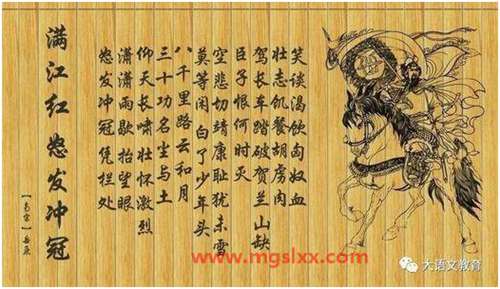 满江红 怒发冲冠
【南宋】岳飞
怒发冲冠凭栏处
潇潇雨歇抬望眼
仰天长啸壮怀激烈
三十功名尘与土
八千里路云和月
莫等闲白了少年头
空悲切靖康耻犹未雪
臣子恨何时灭
驾长车踏破贺兰 山缺
壮志饥餐胡虏肉
笑谈渴饮匈奴血
www.mgslxx.com
大语文教育